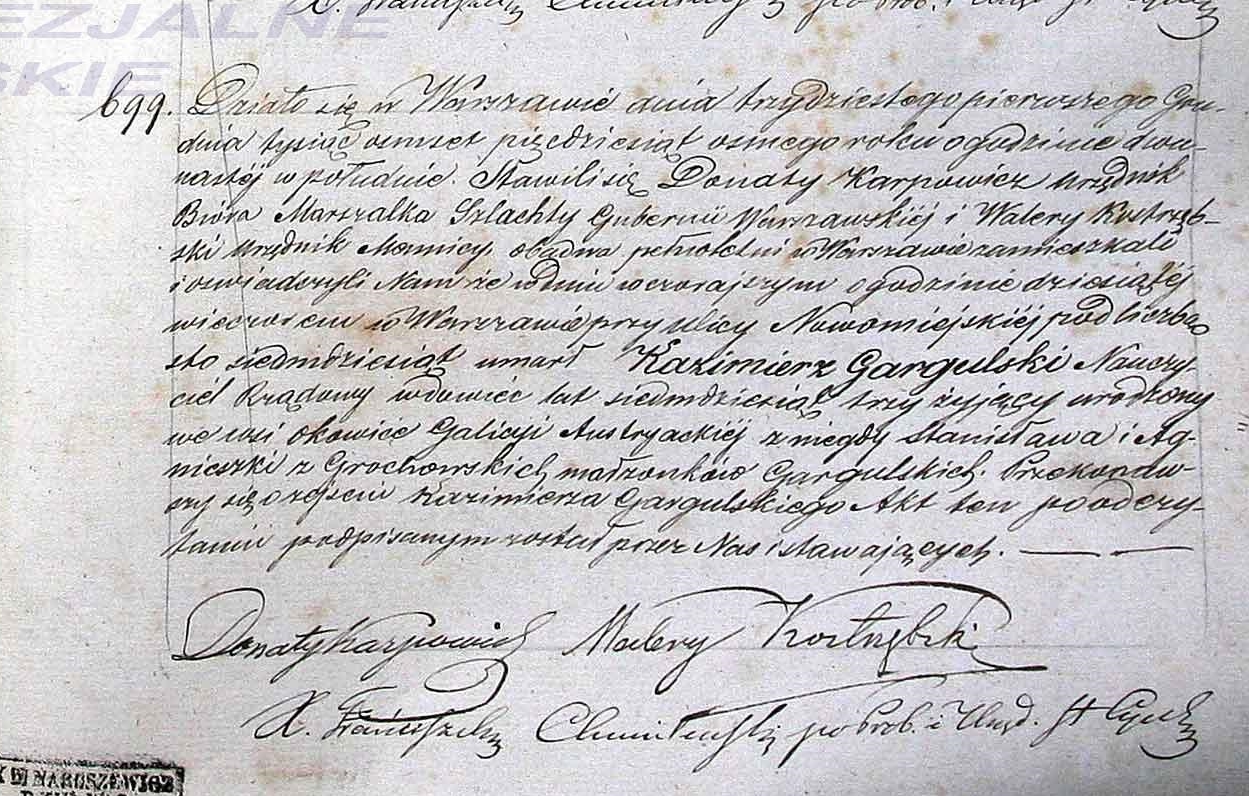 EZJALNE
SKIE
699. Działo się w Warszawie dnia trzydziestego pierwszego Gru-
dnia tysiąc ośmset pięćdziesiąt ósmego roku o godzinie dwu-
nastéj w południe. Stawili się Donaty Karpowicz urzędnik
Bióra Marszałka Szlachty Gubernii Warszawskiéj i Walery Kostrzęb-
ski urzędnik Mennicy, obadwa pełnoletni w Warszawie zamieszkali
i oświadczyli Nam że w dniu wczorajszym o godzinie dziesiątéj
wieczorem w Warszawie przy ulicy Nowomiejskiéj pod liczbą
sto siedmdziesiąt umarł Kazimierz Gargulski Nauczy-
ciel Rządowy wdowiec lat siedmdziesiąt trzy żyjący urodzony
we wsi Okowice Galicyi Austryackiéj z niegdy Stanisława i Ag-
nieszki z Grochowskich małżonków Gargulskich. Przekonaw-
szy się o zejściu Kazimierza Gargulskiego Akt ten po odczy-
taniu podpisanym został przez Nas i stawających.
Donaty Karpowicz Walery Kostrzębski
X. Franciszek po Prob. i Urzęd. St Cyw
NARUSZEWICZ